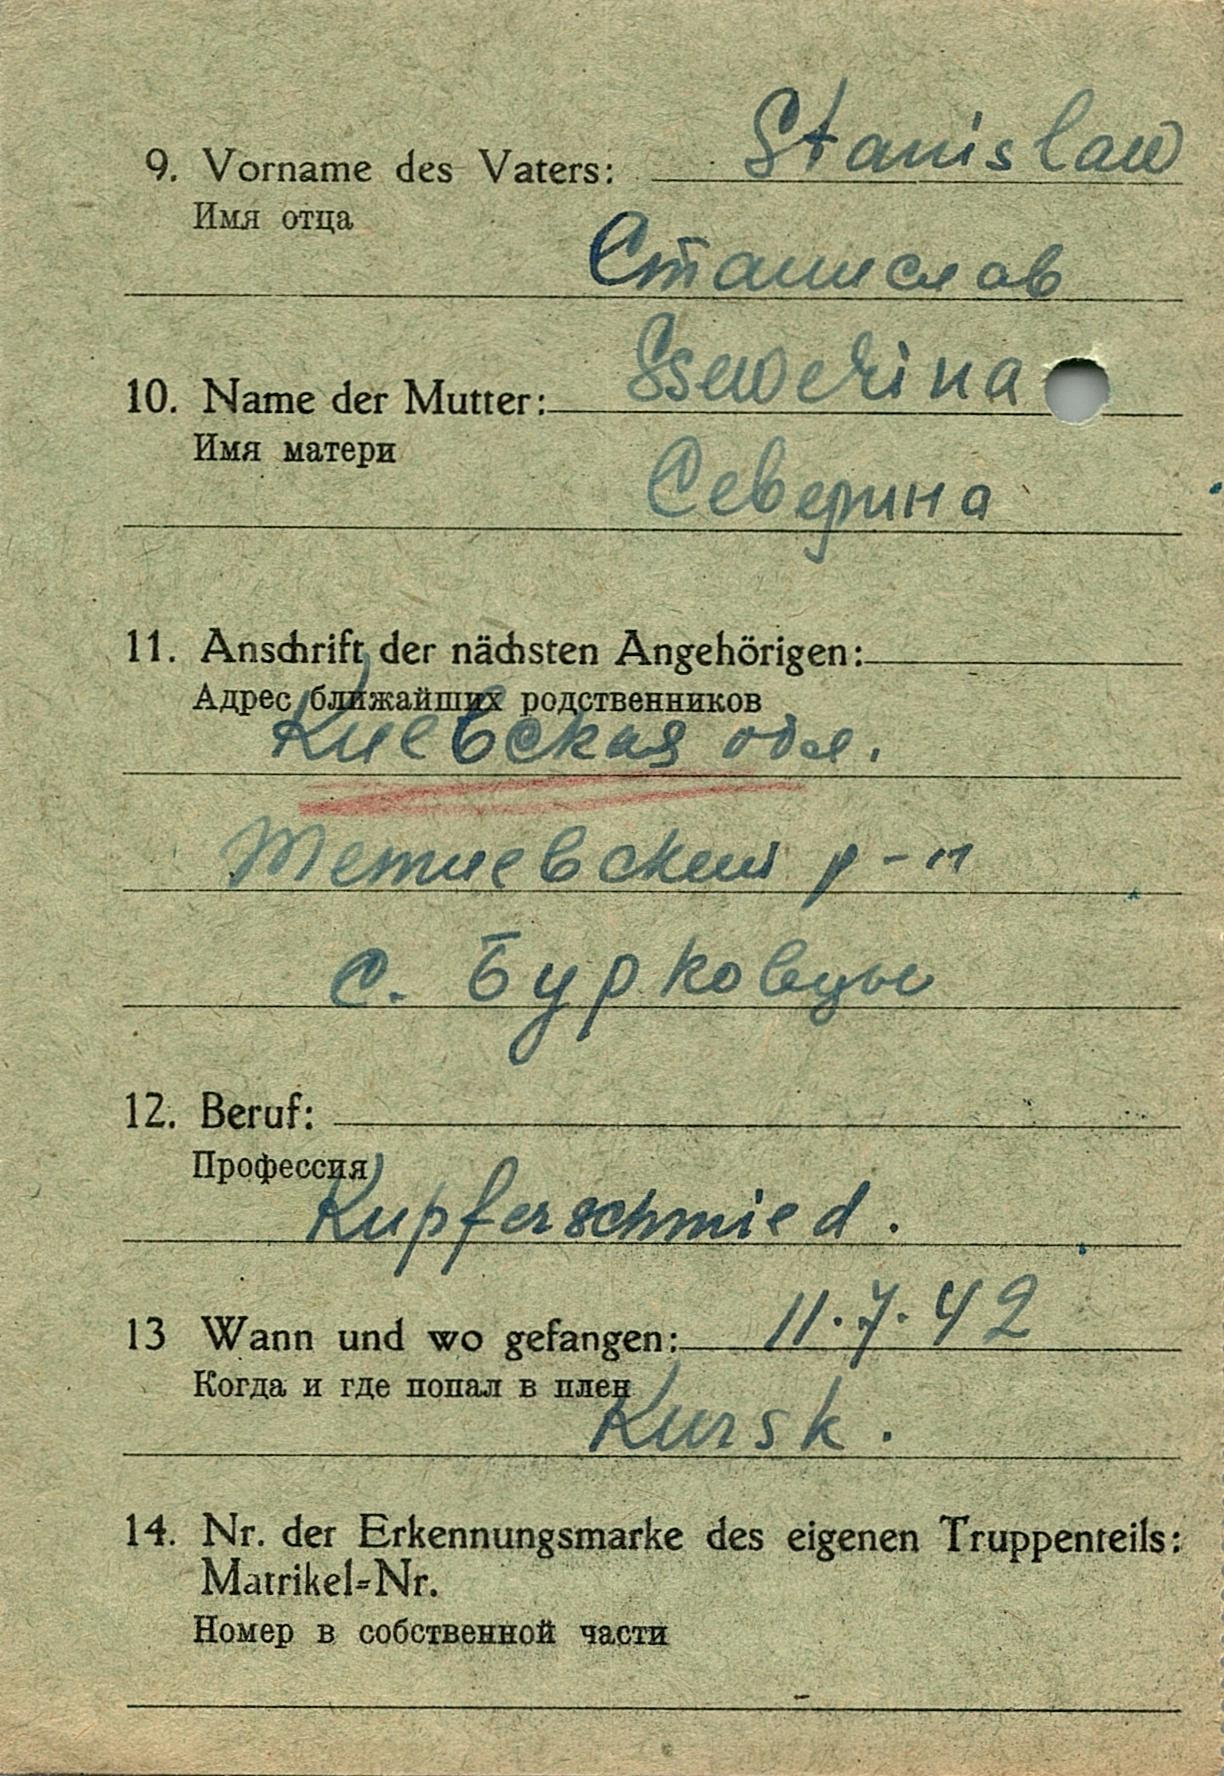 9. Vorname des Vaters: Stanislaw
Имя отца
Станислав
10. Name der Mutter: Ssewerina
Имя матери
Северина
11. Anschrift der nächsten Angehörigen:
Адрес ближайших родственников
Киевская обл.
Тетиевский р-н
с. Бурковцы
12. Beruf:
Профессия
Kupferschmied.
13 Wann und wo gefangen: 11.7.42
Когда и где попал в плен
Kursk.
14. Nr. der Erkennungsmarke des eigenen Truppenteils:
Matrikel-Nr.
Номер в собственной части